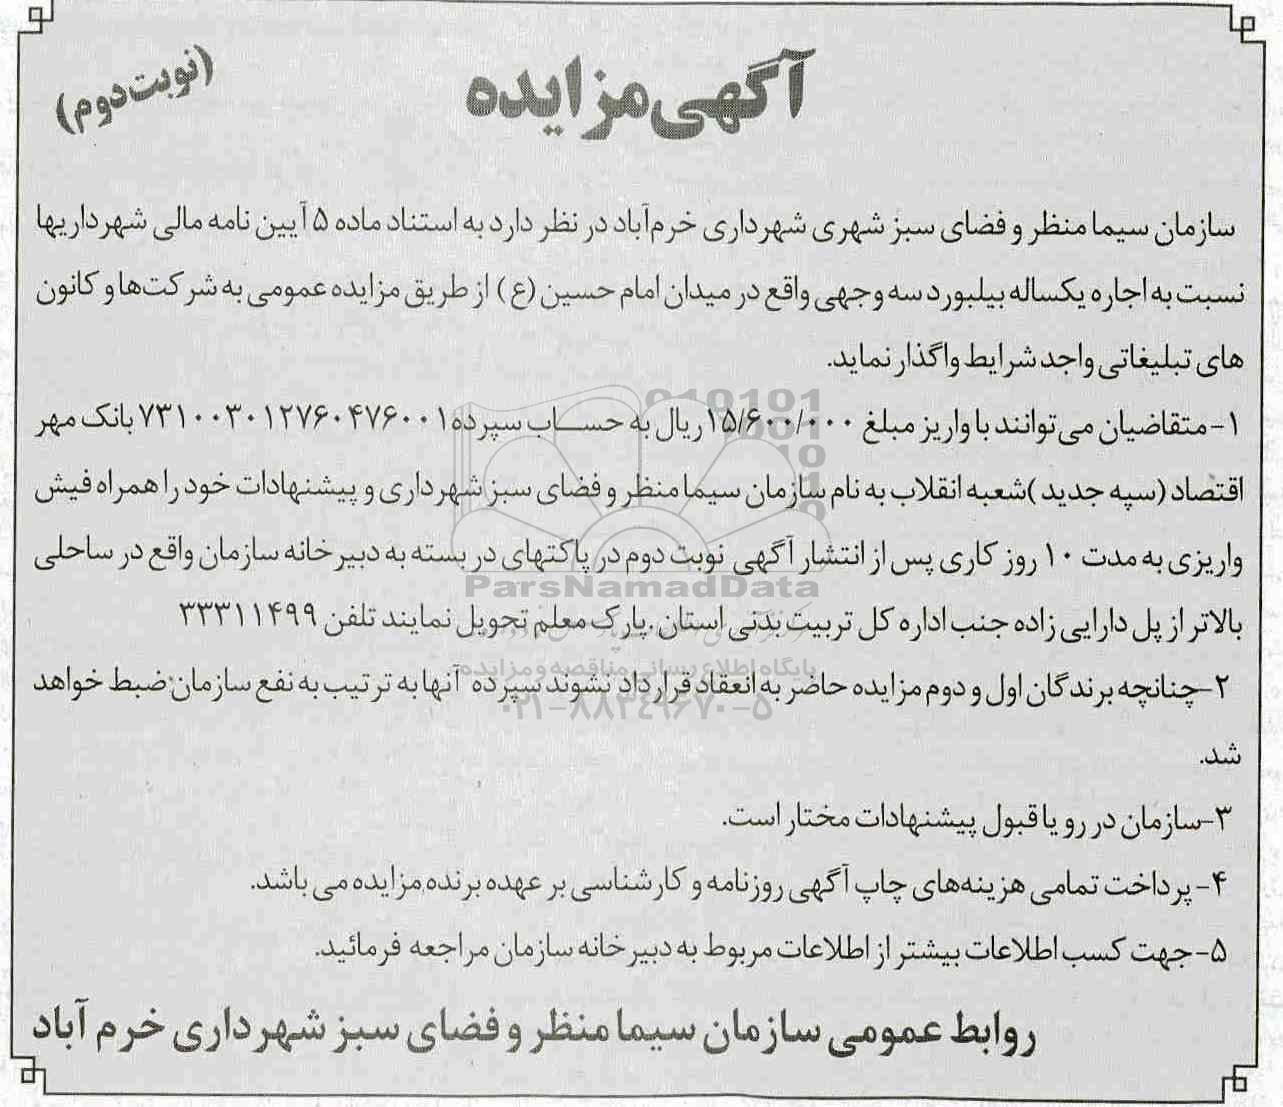 آگهی مزایده
(نوبت دوم)
سازمان سیما منظر و فضای سبز شهری شهرداری خرم‌آباد در نظر دارد به استناد ماده ۵ آیین نامه مالی شهرداریها
نسبت به اجاره یکساله بیلبورد سه وجهی واقع در میدان امام حسین (ع) از طریق مزایده عمومی به شرکت‌ها و کانون
های تبلیغاتی واجد شرایط واگذار نماید.
۱- متقاضیان می‌توانند با واریز مبلغ ۱۵/۶۰۰/۰۰۰ ریال به حساب سپرده ۷۳۱۰۰۳۰۱۲۷۶۰۴۷۶۰۰۱ بانک مهر
اقتصاد (سپه جدید) شعبه انقلاب به نام سازمان سیما منظر و فضای سبز شهرداری و پیشنهادات خود را همراه فیش
واریزی به مدت ۱۰ روز کاری پس از انتشار آگهی نوبت دوم در پاکتهای در بسته به دبیرخانه سازمان واقع در ساحلی
ParsNamadData
بالاتر از پل دارایی زاده جنب اداره کل تربیت بدنی استان. پارک معلم تحویل نمایند تلفن ۳۳۳۱۱۴۹۹
پایگاه اطلاع رسانی مناقصه و مزایده
۲-چنانچه برندگان اول و دوم مزایده حاضر به انعقاد قرارداد نشوند سپرده آنها به ترتیب به نفع سازمان ضبط خواهد
۰۲۱-۸۸۳۴۹۶۷۰-۵
شد.
۳-سازمان در رو یا قبول پیشنهادات مختار است.
۴- پرداخت تمامی هزینه‌های چاپ آگهی روزنامه و کارشناسی بر عهده برنده مزایده می باشد.
۵-جهت کسب اطلاعات بیشتر از اطلاعات مربوط به دبیرخانه سازمان مراجعه فرمائید.
روابط عمومی سازمان سیما منظر و فضای سبز شهرداری خرم آباد